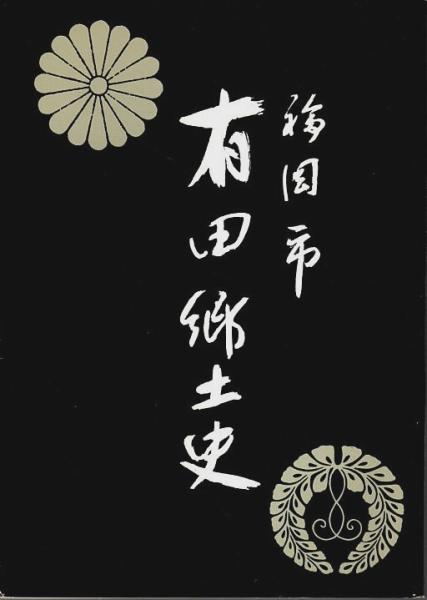 福岡市
有田郷土史